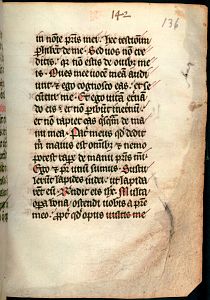 142
136
in noīe pr̄is mei . hec testimoīu
ꝑhibēt de me . Sed uos nō cre
ditis . qꝛ nō estis de ouibꝫ me
is . Oues mee uocē meā audi
unt . et ego cognosco eas . et se
cūtur me . Et ego uitā etnā
do eis . et nō peribūt ineternū .
et nō rapiet eas qͥsqͣm de ma
nu mea . Pat̄ meus qd̄ dedit
m̄ maius est omibꝫ . et nemo
potest rape de manu pr̄is mei .
Ego et pat̄ unū sumus . Sustu
lerūt lapides iudei . ut lapida
rēt eū . Rn̄dit eis ih̄c . Multa
opa bona ostendi uobis a pr̄e
meo . ꝓpt̄ qd̄ opus uultis me